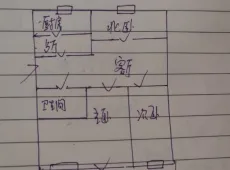 厨房
北卧
客厅
卫生间
主卧
次卧